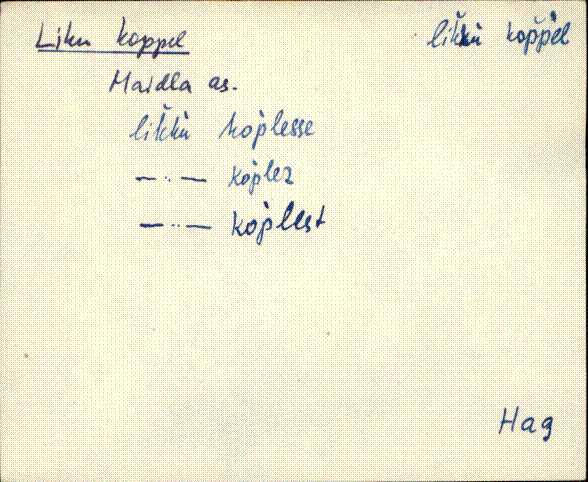 Liku koppel likku koppel
Maidla as.
likku koplesse
—··— koplez
—··— koplest
Hag